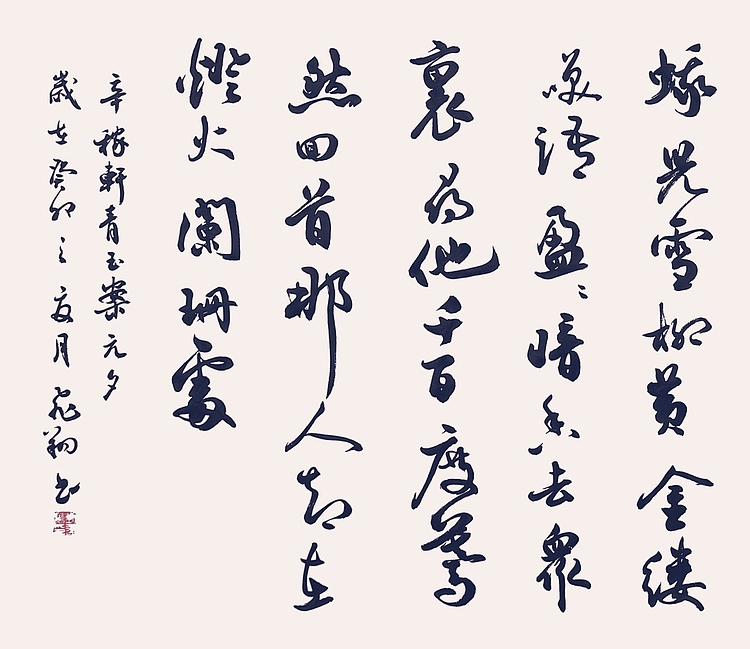 蛾兒雪柳黄金縷
咲語盈〻暗香去眾
裏尋他千百度驀
然回首那人却在
燈火闌珊處
辛稼軒青玉案元夕
歲在癸卯之夏月飛翔書